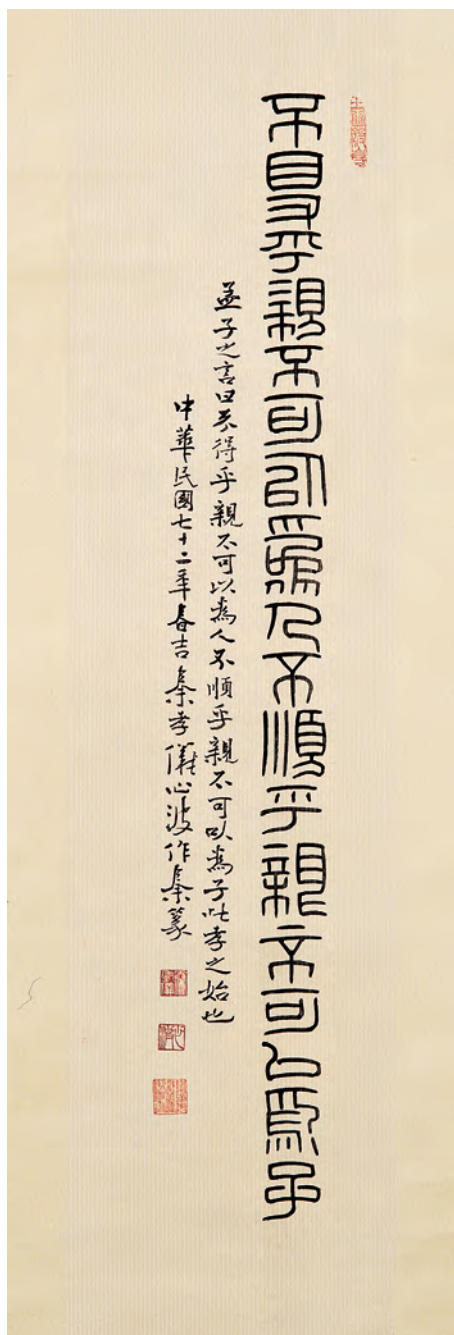 不得乎親不可以為人不順乎親不可以為子
孟子之言曰不得乎親不可以為人不順乎親不可以為子此孝之始也
中華民國七十二年春吉秦孝儀心波作秦篆